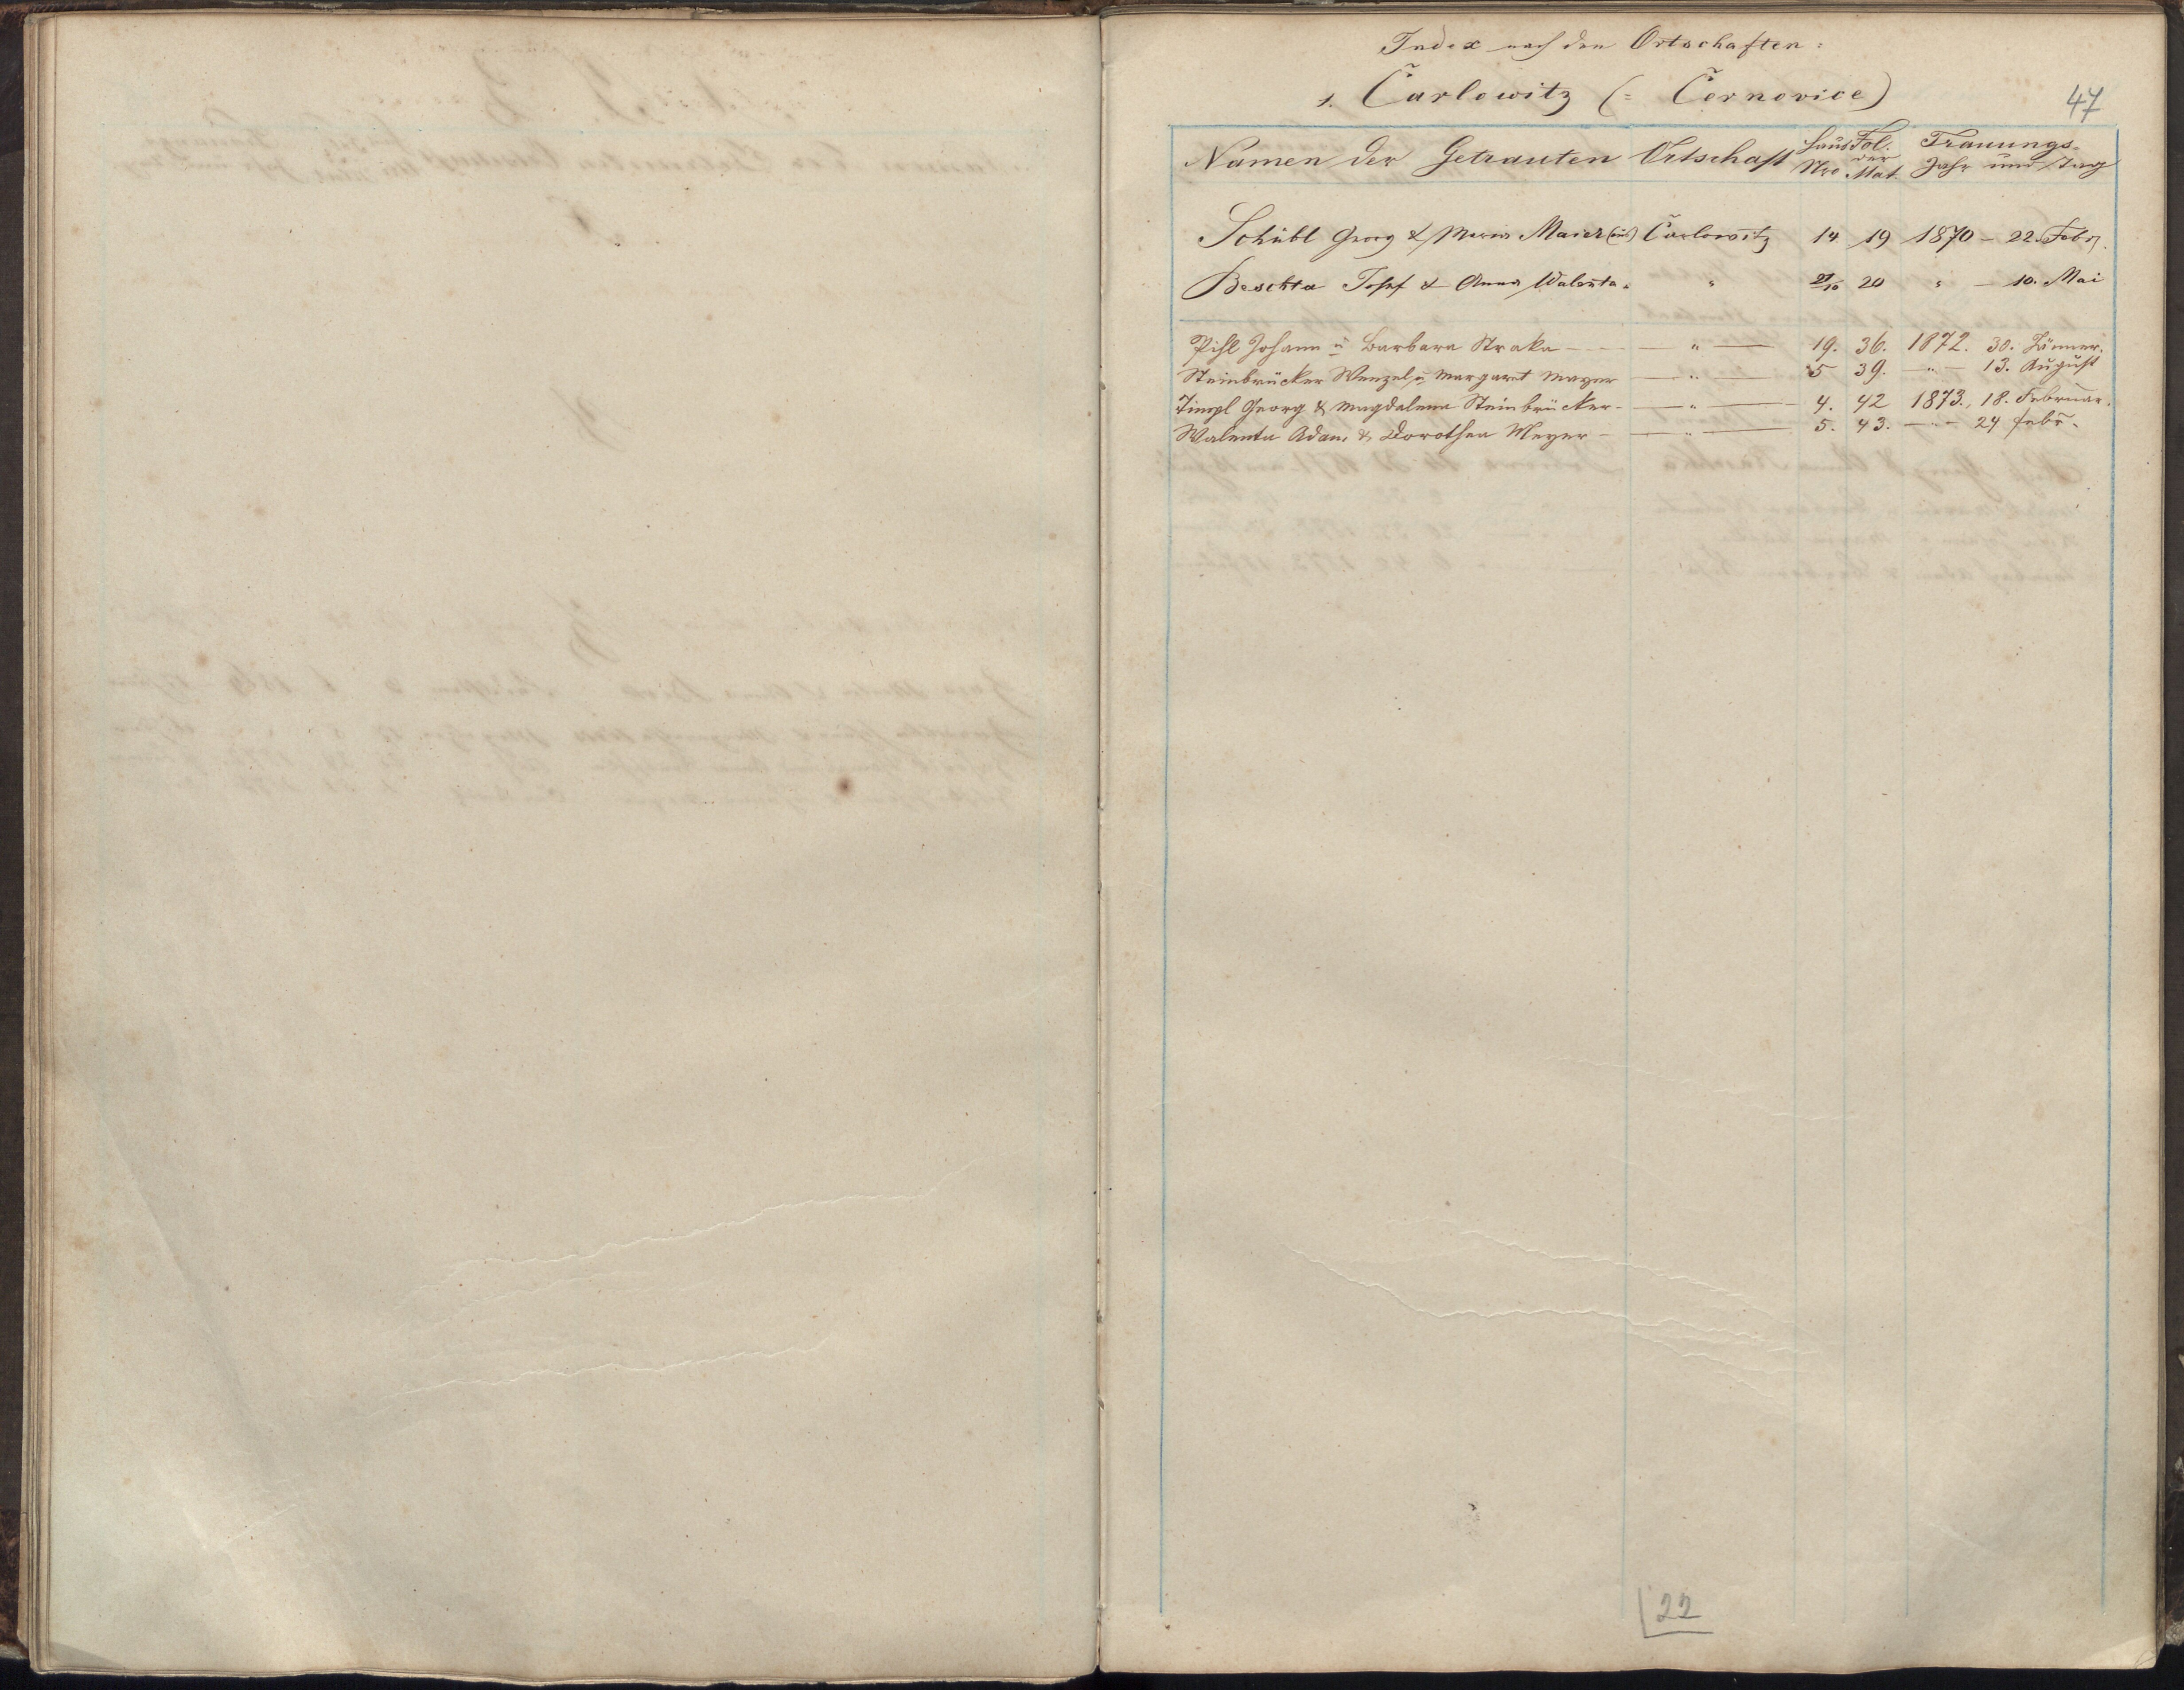 Index nach den Ortschaften:
1. Čarlowitz (= Černovice)
47
Namen der Getrauten Ortschaft Haus Nro Fol. der Mat. Trauungs- Jahr und Tag
Schübl Georg & Maria Maier Čarlowitz 14 19 1870 – 22. Febr.
Beschta Josef & Anna Walenta " 20 " – 10. Mai
Pihl Johann u Barbara Straka — " — 19. 36. 1872. 30. Jänner.
Steinbrücker Wenzel u Margaret Mayer — " — 5 39. — " — 13. August
Timpl Georg & Magdalena Steinbrücker — " — 4. 42 1873., 18. Februar.
Walenta Adam & Dorothea Meyer — " — 5. 43. — " — 24 Febr.
22